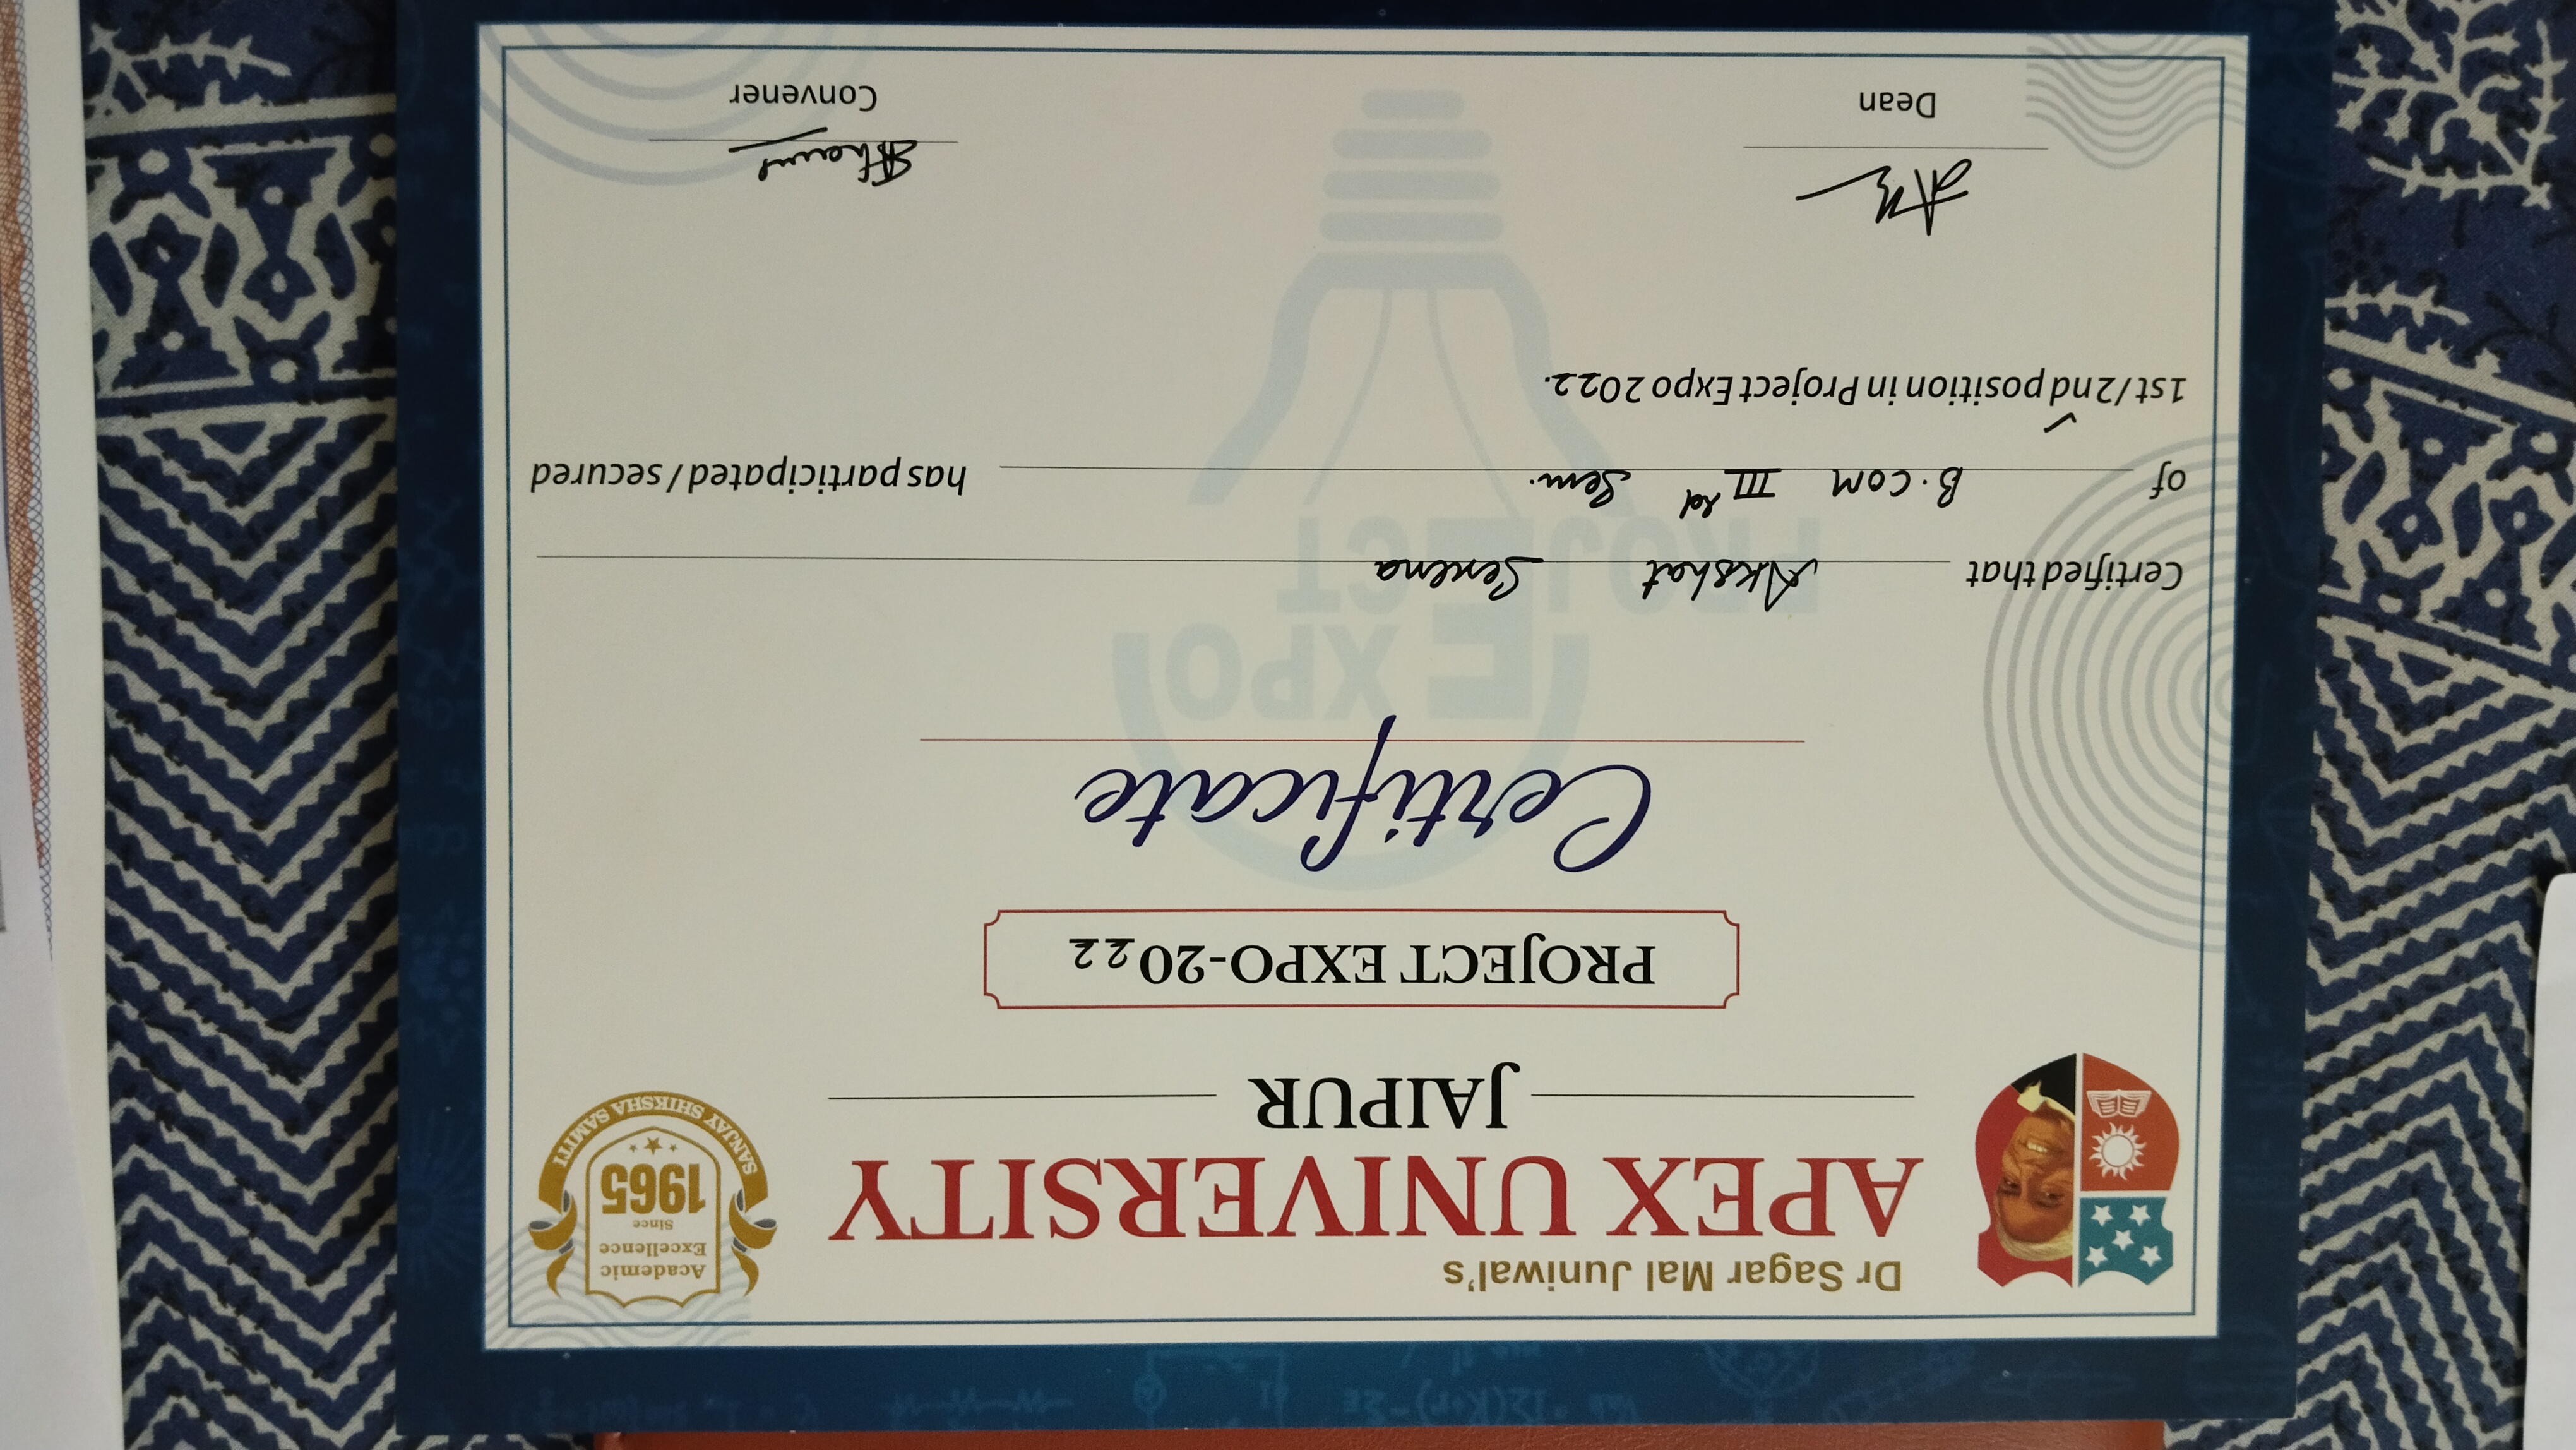 Dr Sagar Mal Juniwal's
APEX UNIVERSITY
JAIPUR
Academic
Excellence
Since
1965
SANJAY SHIKSHA SAMITI
PROJECT EXPO-2022
Certificate
PROJECT EXPO
Certified that Akshat Sexena
of B.COM IIIrd Sem. has participated / secured
1st/2nd position in Project Expo 2022.
Dean
Convener